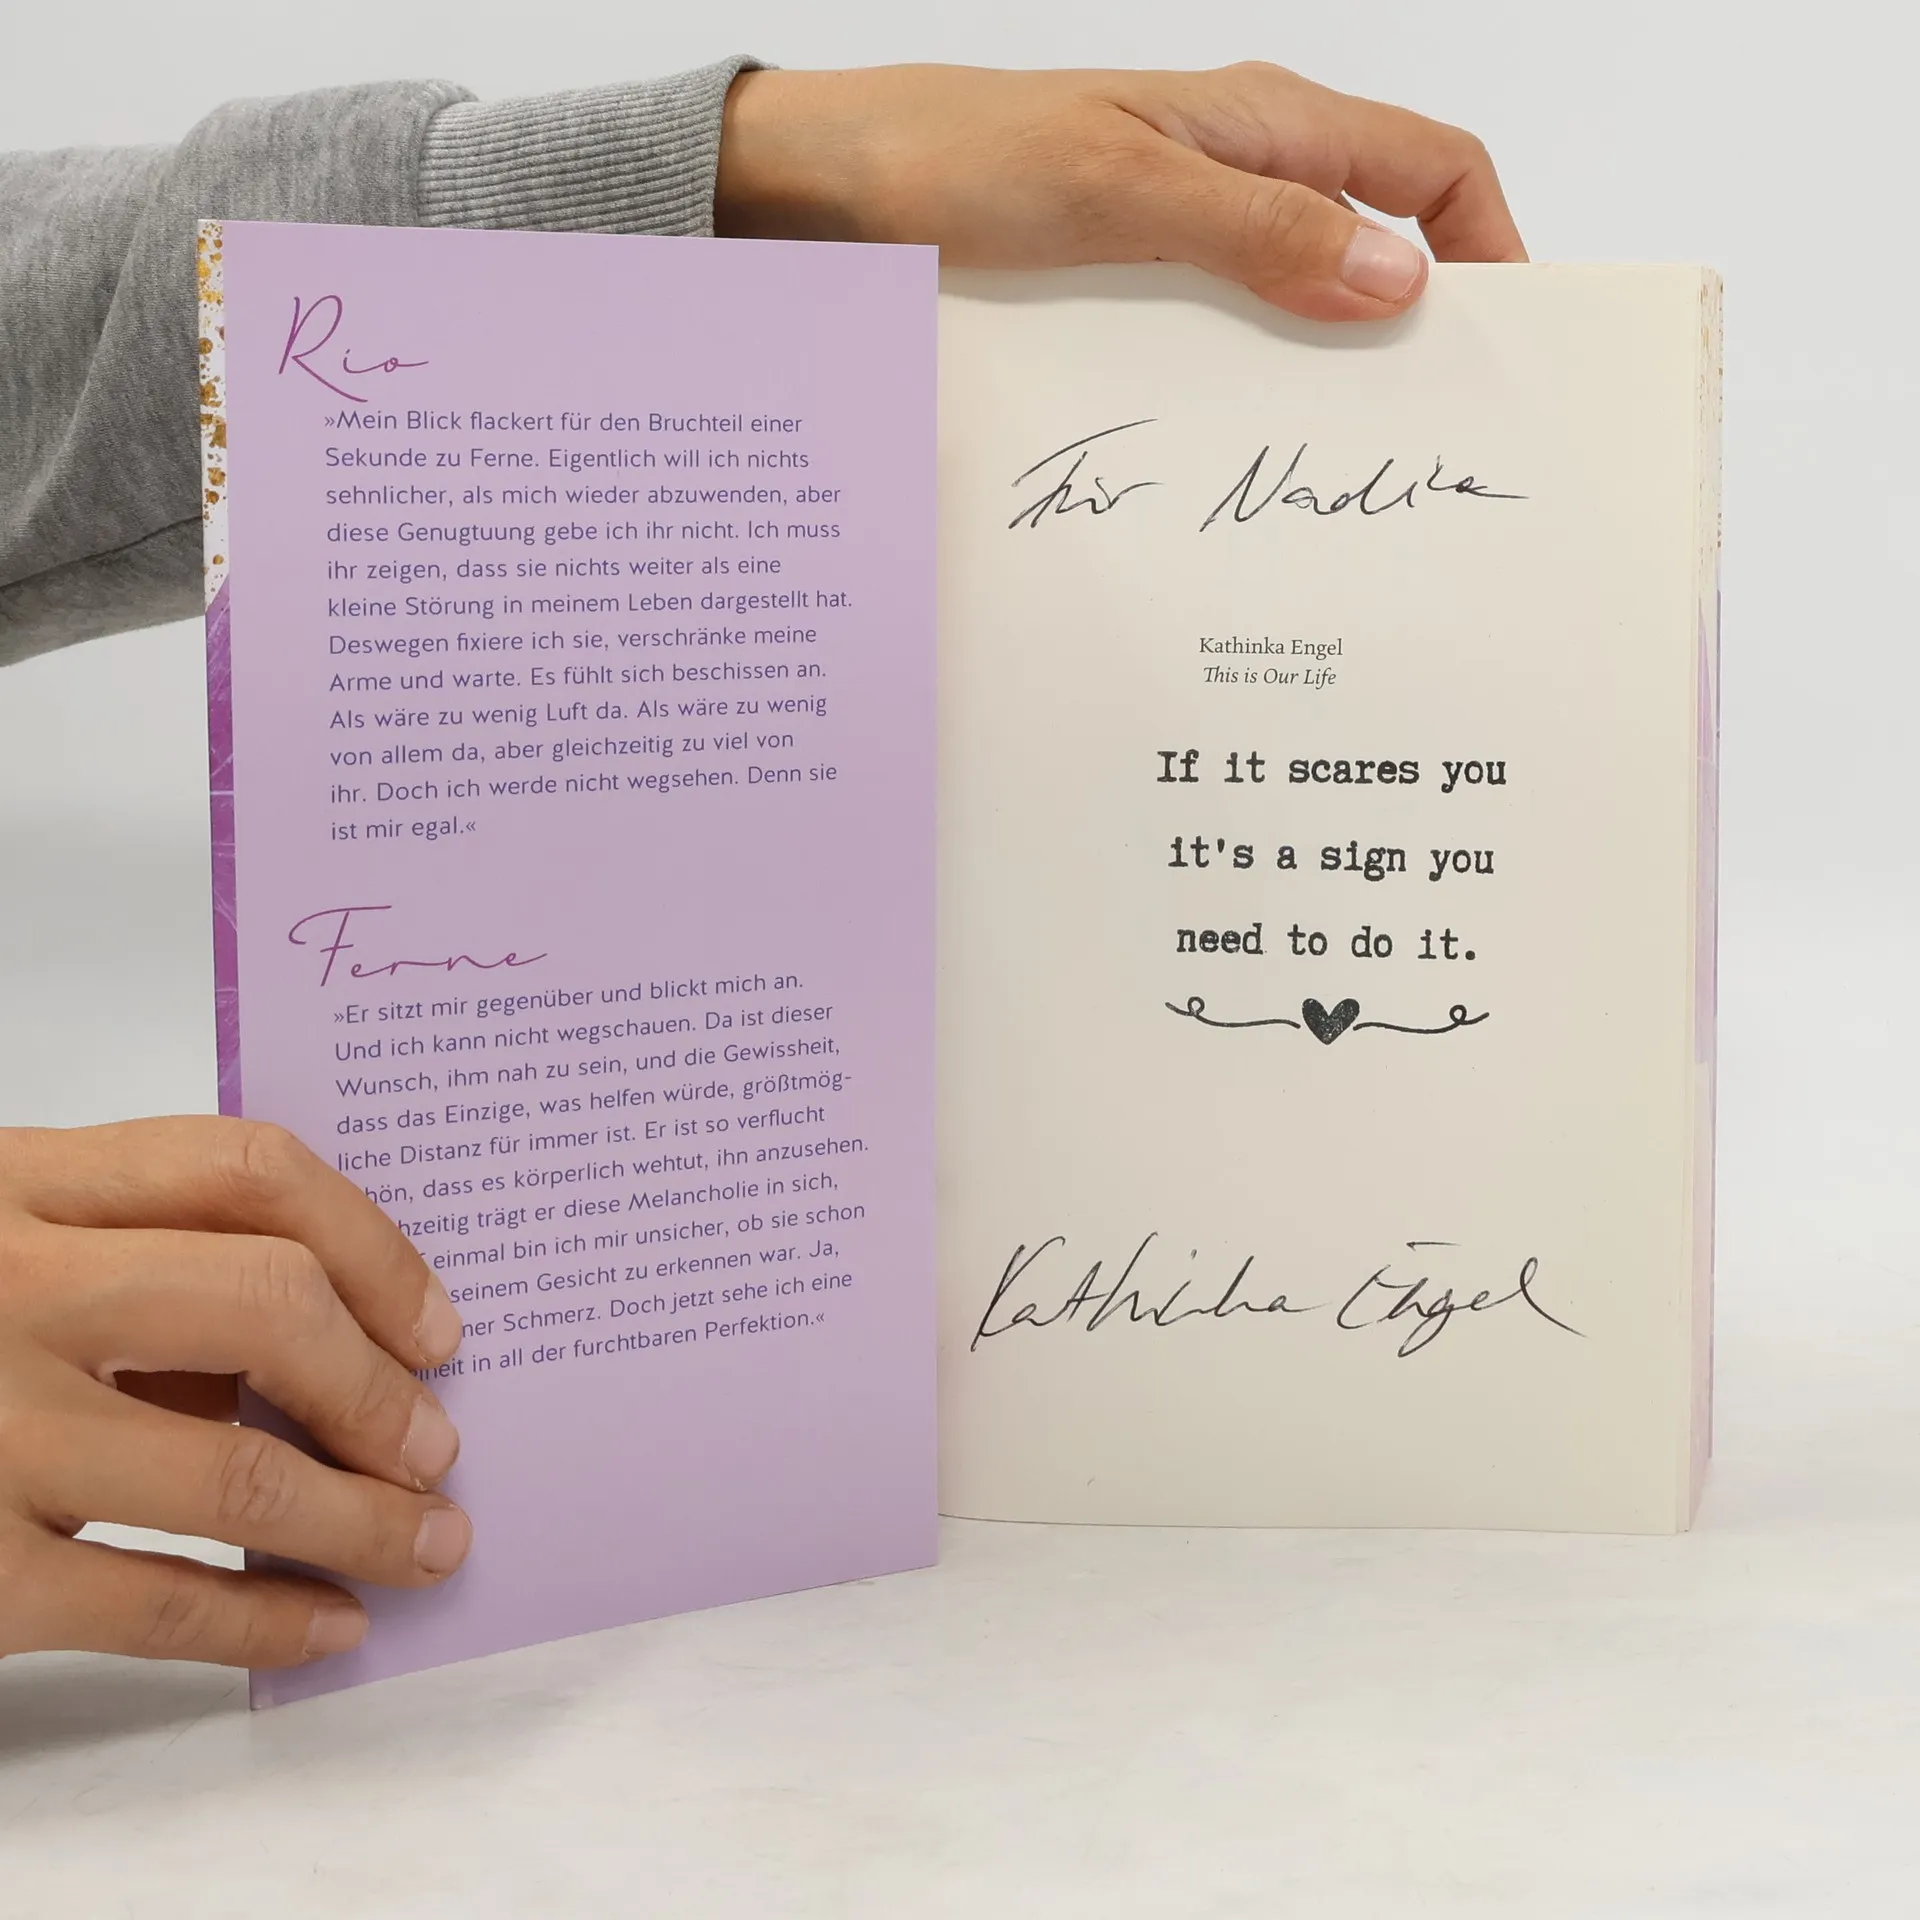 Rio
»Mein Blick flackert für den Bruchteil einer
Sekunde zu Ferne. Eigentlich will ich nichts
sehnlicher, als mich wieder abzuwenden, aber
diese Genugtuung gebe ich ihr nicht. Ich muss
ihr zeigen, dass sie nichts weiter als eine
kleine Störung in meinem Leben dargestellt hat.
Deswegen fixiere ich sie, verschränke meine
Arme und warte. Es fühlt sich beschissen an.
Als wäre zu wenig Luft da. Als wäre zu wenig
von allem da, aber gleichzeitig zu viel von
ihr. Doch ich werde nicht wegsehen. Denn sie
ist mir egal.«
Ferne
»Er sitzt mir gegenüber und blickt mich an.
Und ich kann nicht wegschauen. Da ist dieser
Wunsch, ihm nah zu sein, und die Gewissheit,
dass das Einzige, was helfen würde, größtmög-
liche Distanz für immer ist. Er ist so verflucht
hön, dass es körperlich wehtut, ihn anzusehen.
hzeitig trägt er diese Melancholie in sich,
einmal bin ich mir unsicher, ob sie schon
seinem Gesicht zu erkennen war. Ja,
ner Schmerz. Doch jetzt sehe ich eine
heit in all der furchtbaren Perfektion.«
Für Nadia
Kathinka Engel
This is Our Life
If it scares you
it's a sign you
need to do it.
Kathinka Engel